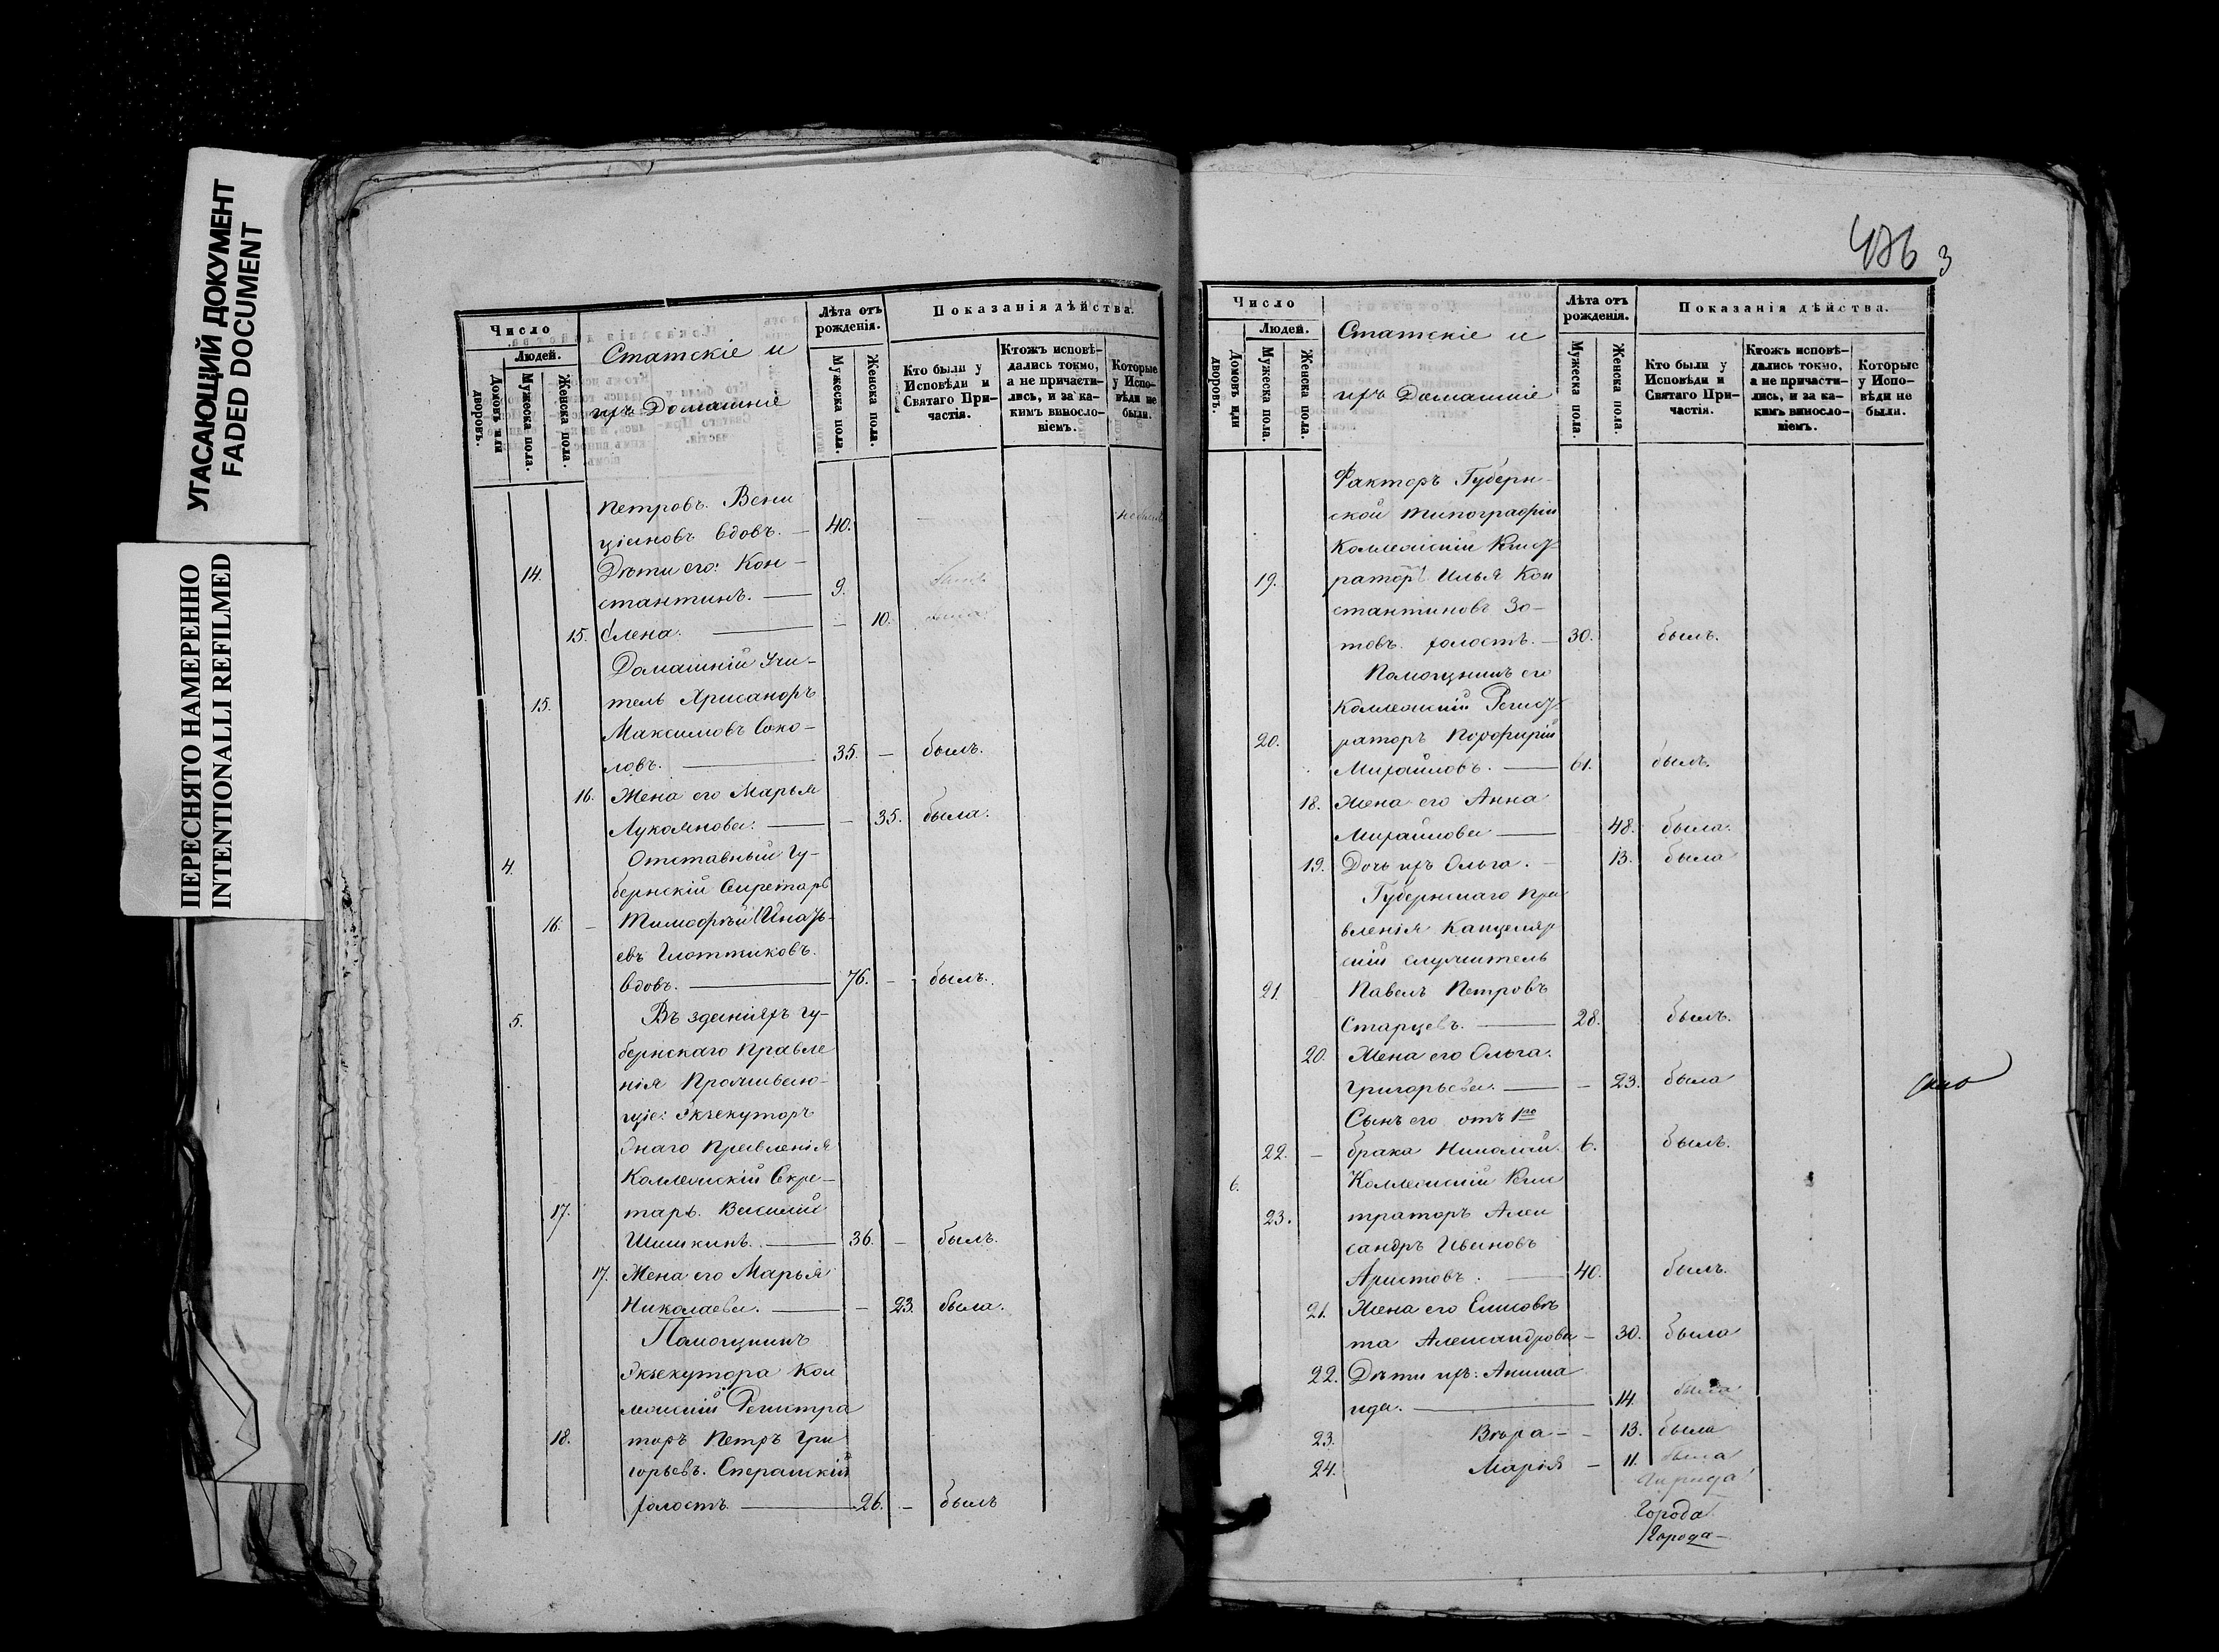 УГАСАЮЩИЙ ДОКУМЕНТ
FADED DOCUMENT
ПЕРЕСНЯТО НАМЕРЕННО
INTENTIONALLI REFILMED
Число
Людей.
Домовъ или дворовъ.
Мужеска пола.
Женска пола.
Статскіе и
ихъ Домашніе
Лѣта отъ рожденія.
Мужеска пола.
Женска пола.
Показанія дѣйства.
Кто были у
Исповѣди и
Святаго При-
частія.
Ктожъ исповѣ-
дались токмо,
а не причасти-
лись, и за ка-
кимъ виносло-
віемъ.
Которые
у Испо-
вѣди не
были.
Петровъ. Вени
ціановъ вдовъ. — 40.
14. Дѣти его: Кон-
стантинъ. — 9.
15. Елена. — 10.
Домашній Учи-
15. тель Хрисанфъ
Максимовъ Соко-
ловъ. — 35. — былъ.
16. Жена его Марья
Лукоянова. — 35. была.
4. Отставный Гу-
бернскій Секретарь
16. Тимофѣй Игнать-
евъ
вдовъ. — 76. — былъ.
5. Въ зданіяхъ Гу-
бернскаго Правле
нія Проживаю-
щіе: Экзекуторъ
Онаго Правленія
Коллежскій Секре-
17. тарь. Василій
Шишкинъ. — 36. — былъ.
17. Жена его Марья
Николаева. — 23. была.
Помощникъ
Экзекутора Кол
лежскій Регистра
18. торъ Петръ Гри
горьевъ.
холостъ — 26. — былъ
3
Число
Людей.
Домовъ или дворовъ.
Мужеска пола.
Женска пола.
Статскіе и
ихъ Домашніе
Лѣта отъ рожденія.
Мужеска пола.
Женска пола.
Показанія дѣйства.
Кто были у
Исповѣди и
Святаго При-
частія.
Ктожъ исповѣ-
дались токмо,
а не причасти-
лись, и за ка-
кимъ виносло-
віемъ.
Которые
у Испо-
вѣди не
были.
Факторъ Губерн-
ской Типографіи
Коллежскій Регист
19. раторъ Илья Кон
стантиновъ Зо-
товъ. холостъ. — 30. былъ.
Помощникъ его
Коллежскій Регист
20. раторъ Порфирій
Михайловъ. — 61. былъ.
18. Жена его Анна
Михайлова — 48. была.
19. Дочь ихъ Ольга. — 13. была
Губернскаго Пра
вленія Канцеляр
скій служитель
21. Павелъ Петровъ
Старцевъ. — 28. былъ.
20. Жена его Ольга.
Григорьева. — 23. была
Сынъ его отъ 1го
22. — брака Николай. 6. былъ.
6. Коллежскій Реги
23. траторъ Алек
сандръ Ивановъ
Аристовъ. — 40. былъ.
21. Жена его Елисовѣ
та Александрова — 30. была
22. Дѣти ихъ:
ида. — 14. была
23. Вѣра — 13. была
24. Марія — 11. была
Города
Города